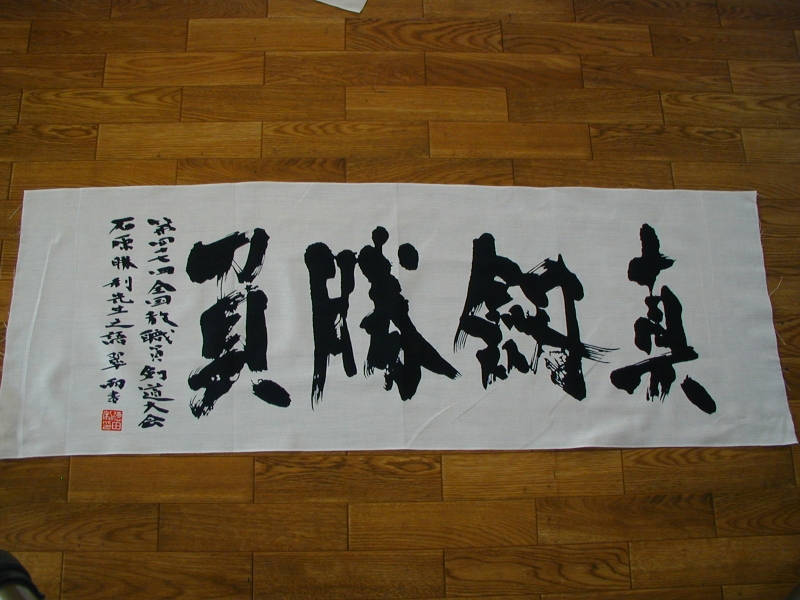 真剣勝負
第四十七回全国教職員剣道大会
石原勝利先生之語 翠雨書